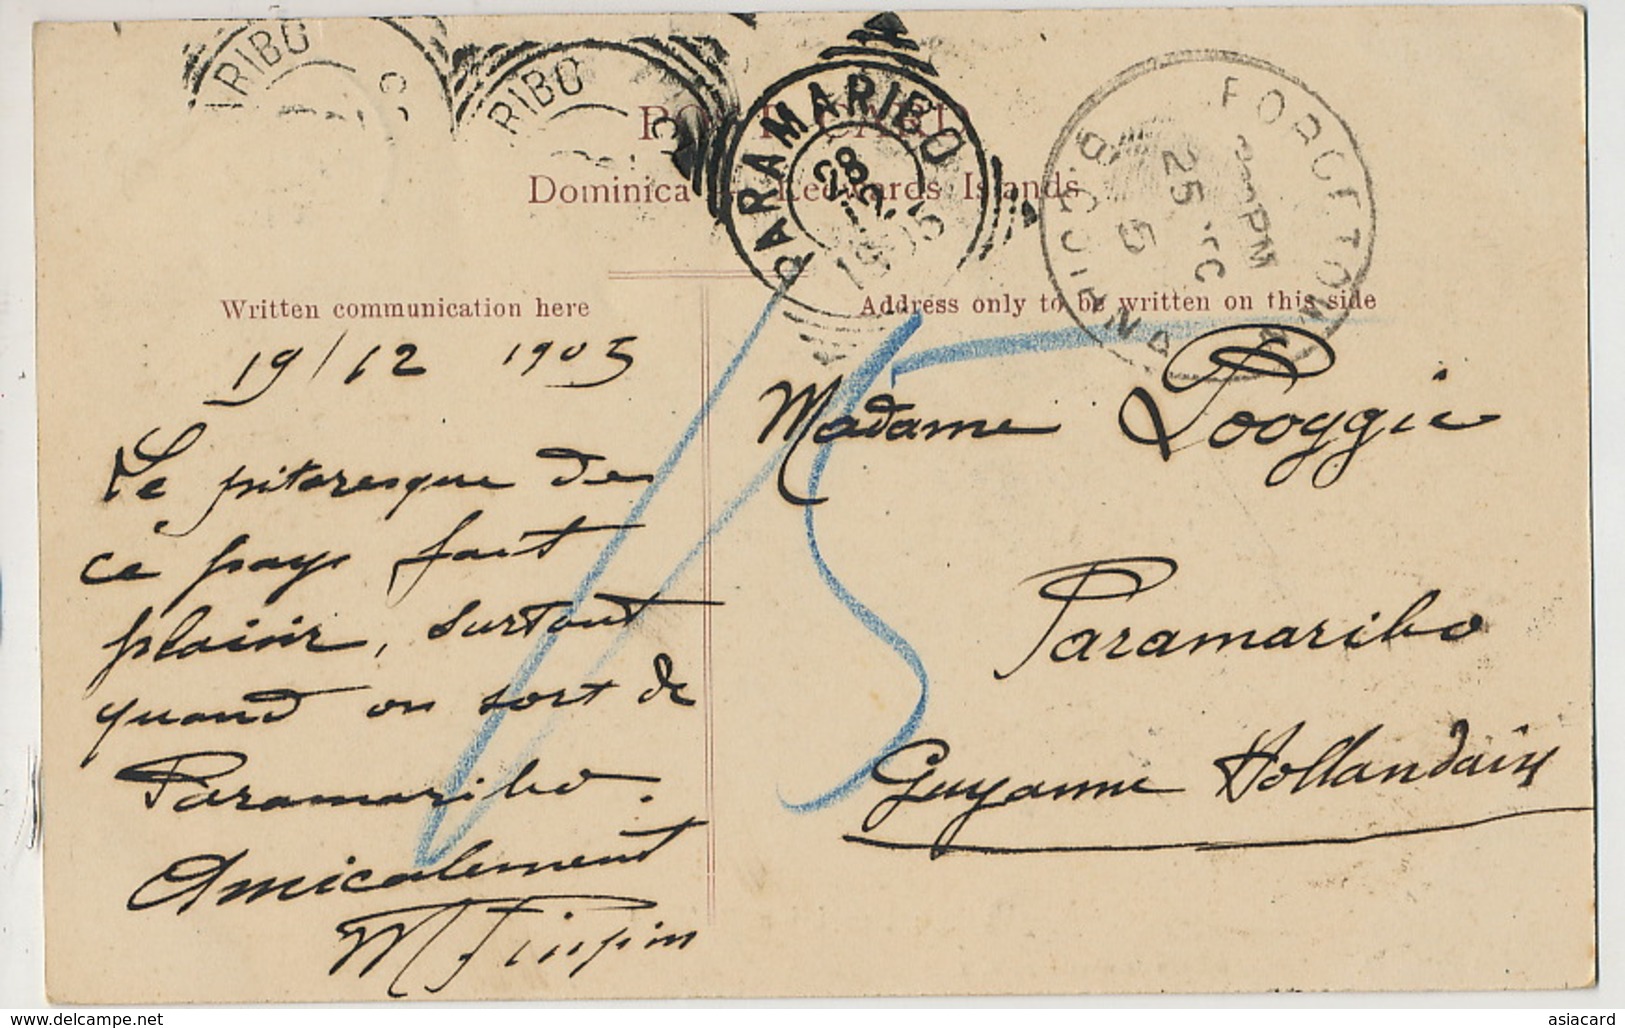 POST CARD
Dominica — Leewards Islands
RIBO
RIBO
PARAMARIBO
28
12
1905
25
5
PM
Written communication here
Address only to be written on this side
19/12 1905
Le pitoresque de
ce pays fait
plaisir, surtout
quand on sort de
Paramaribo.
Amicalement
15
Madame Pooggie
Paramaribo
Guyanne Hollandaise
www.delcampe.net
asiacard